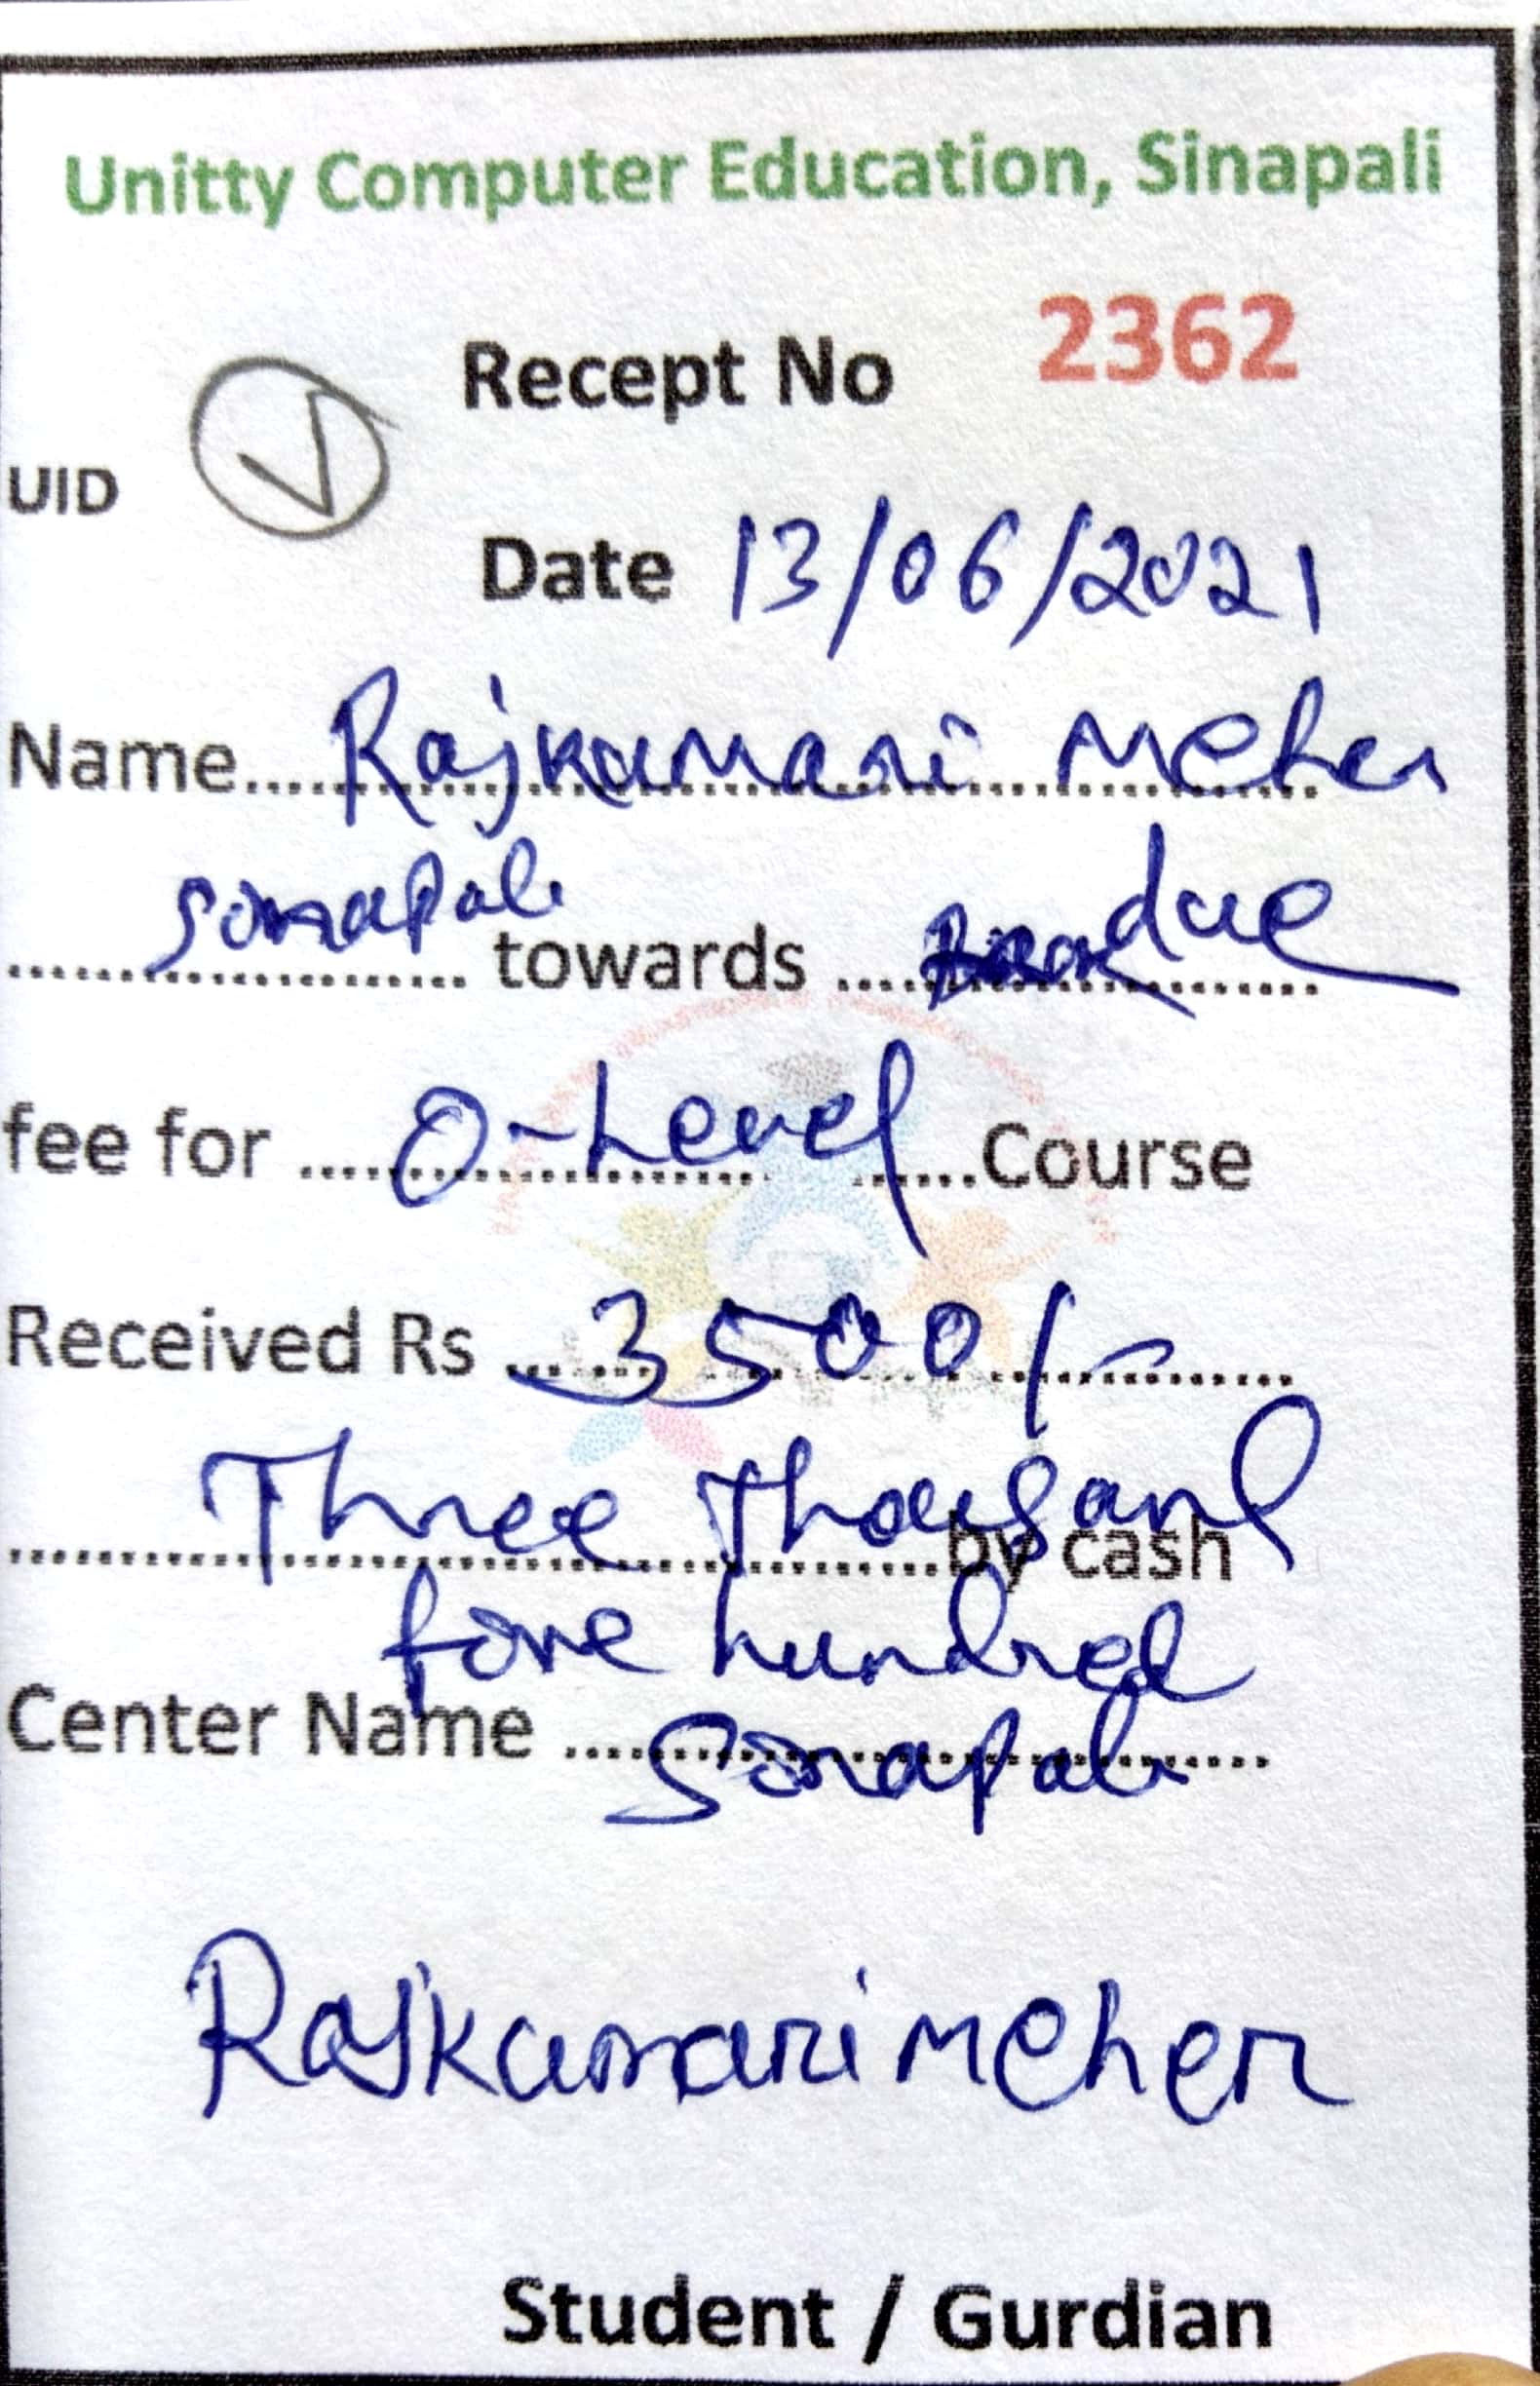 Unitty Computer Education, Sinapali
Recept No 2362
UID
Date 13/06/2021
Name Rajkumari Meher
Sinapali towards due
fee for O-Level Course
Received Rs 3500/-
Three Thousand by cash
five hundred
Center Name Sinapali
Rajkumari Meher
Student / Gurdian